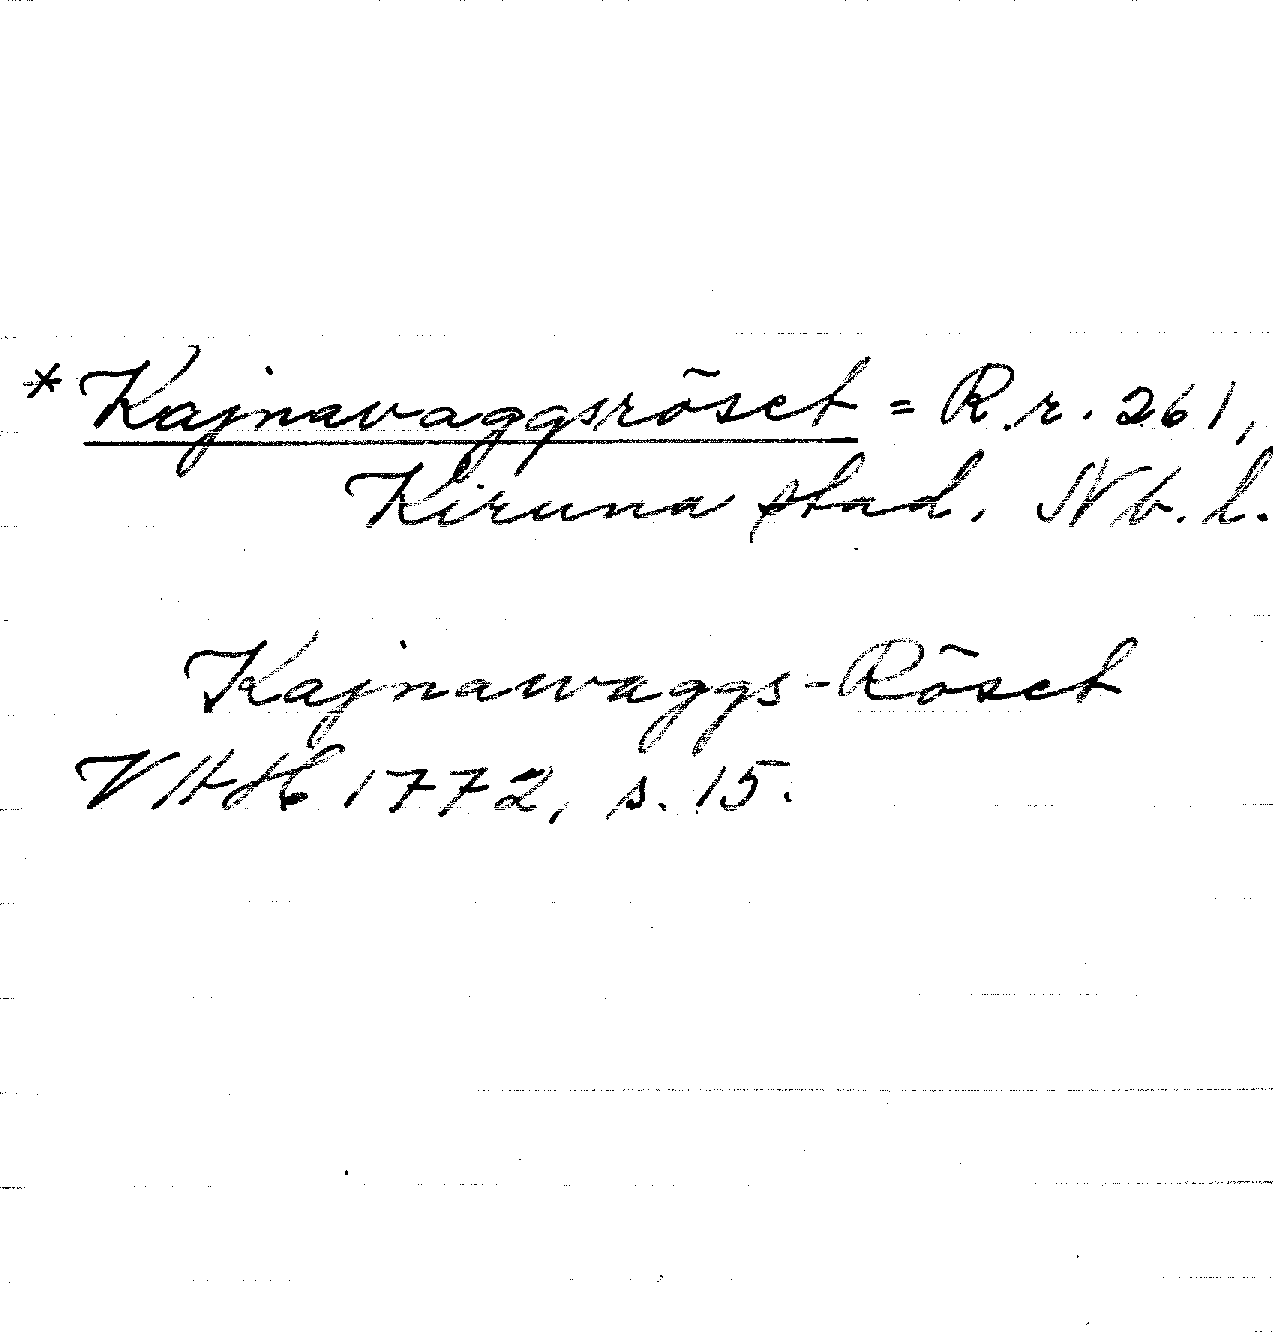 * Kajnavaggsröset = R.r. 261,
Kiruna stad. Nb. l.
Kajnawaggs-Röset
1772, s. 15.